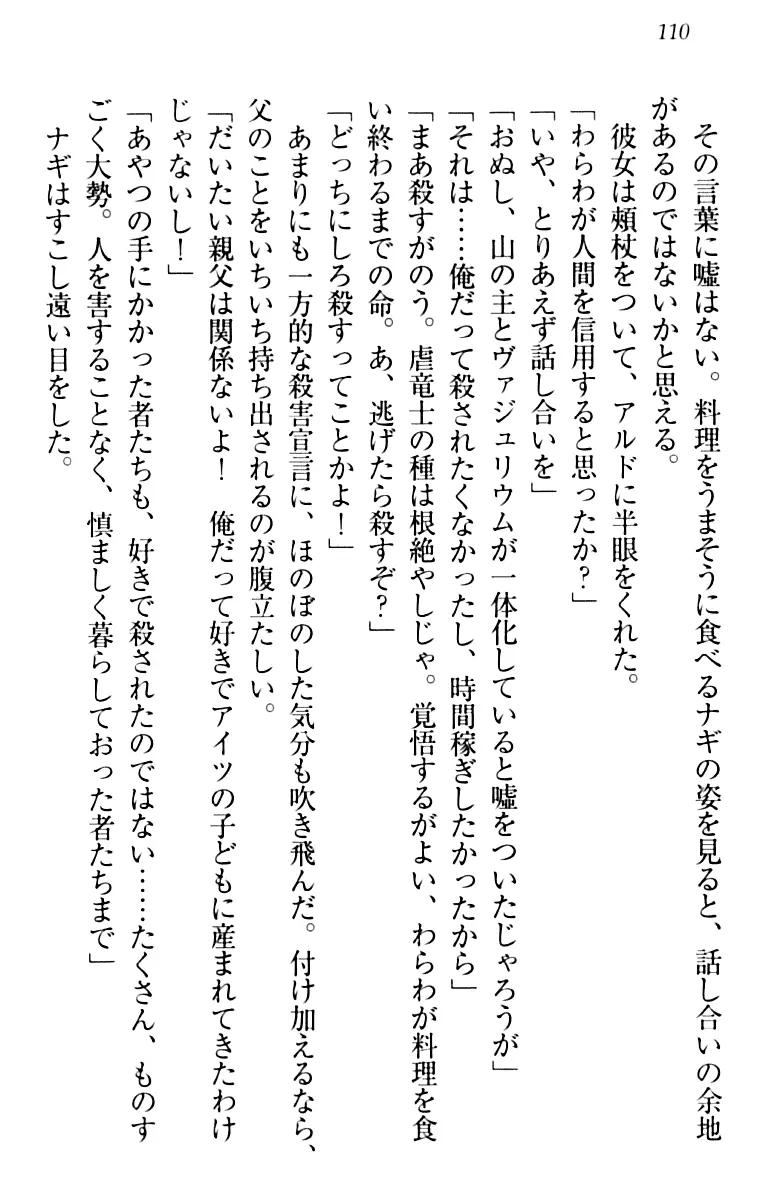 110
その言葉に嘘はない。料理をうまそうに食べるナギの姿を見ると、話し合いの余地
があるのではないかと思える。
彼女は頰杖をついて、アルドに半眼をくれた。
「わらわが人間を信用すると思ったか？」
「いや、とりあえず話し合いを」
「おぬし、山の主とヴァジュリウムが一体化していると嘘をついたじゃろうが」
「それは……俺だって殺されたくなかったし、時間稼ぎしたかったから」
「まあ殺すがのう。虐竜士の種は根絶やしじゃ。覚悟するがよい、わらわが料理を食
い終わるまでの命。あ、逃げたら殺すぞ？」
「どっちにしろ殺すってことかよ！」
あまりにも一方的な殺害宣言に、ほのぼのした気分も吹き飛んだ。付け加えるなら、
父のことをいちいち持ち出されるのが腹立たしい。
「だいたい親父は関係ないよ！　俺だって好きでアイツの子どもに産まれてきたわけ
じゃないし！」
「あやつの手にかかった者たちも、好きで殺されたのではない……たくさん、ものす
ごく大勢。人を害することなく、慎ましく暮らしておった者たちまで」
ナギはすこし遠い目をした。